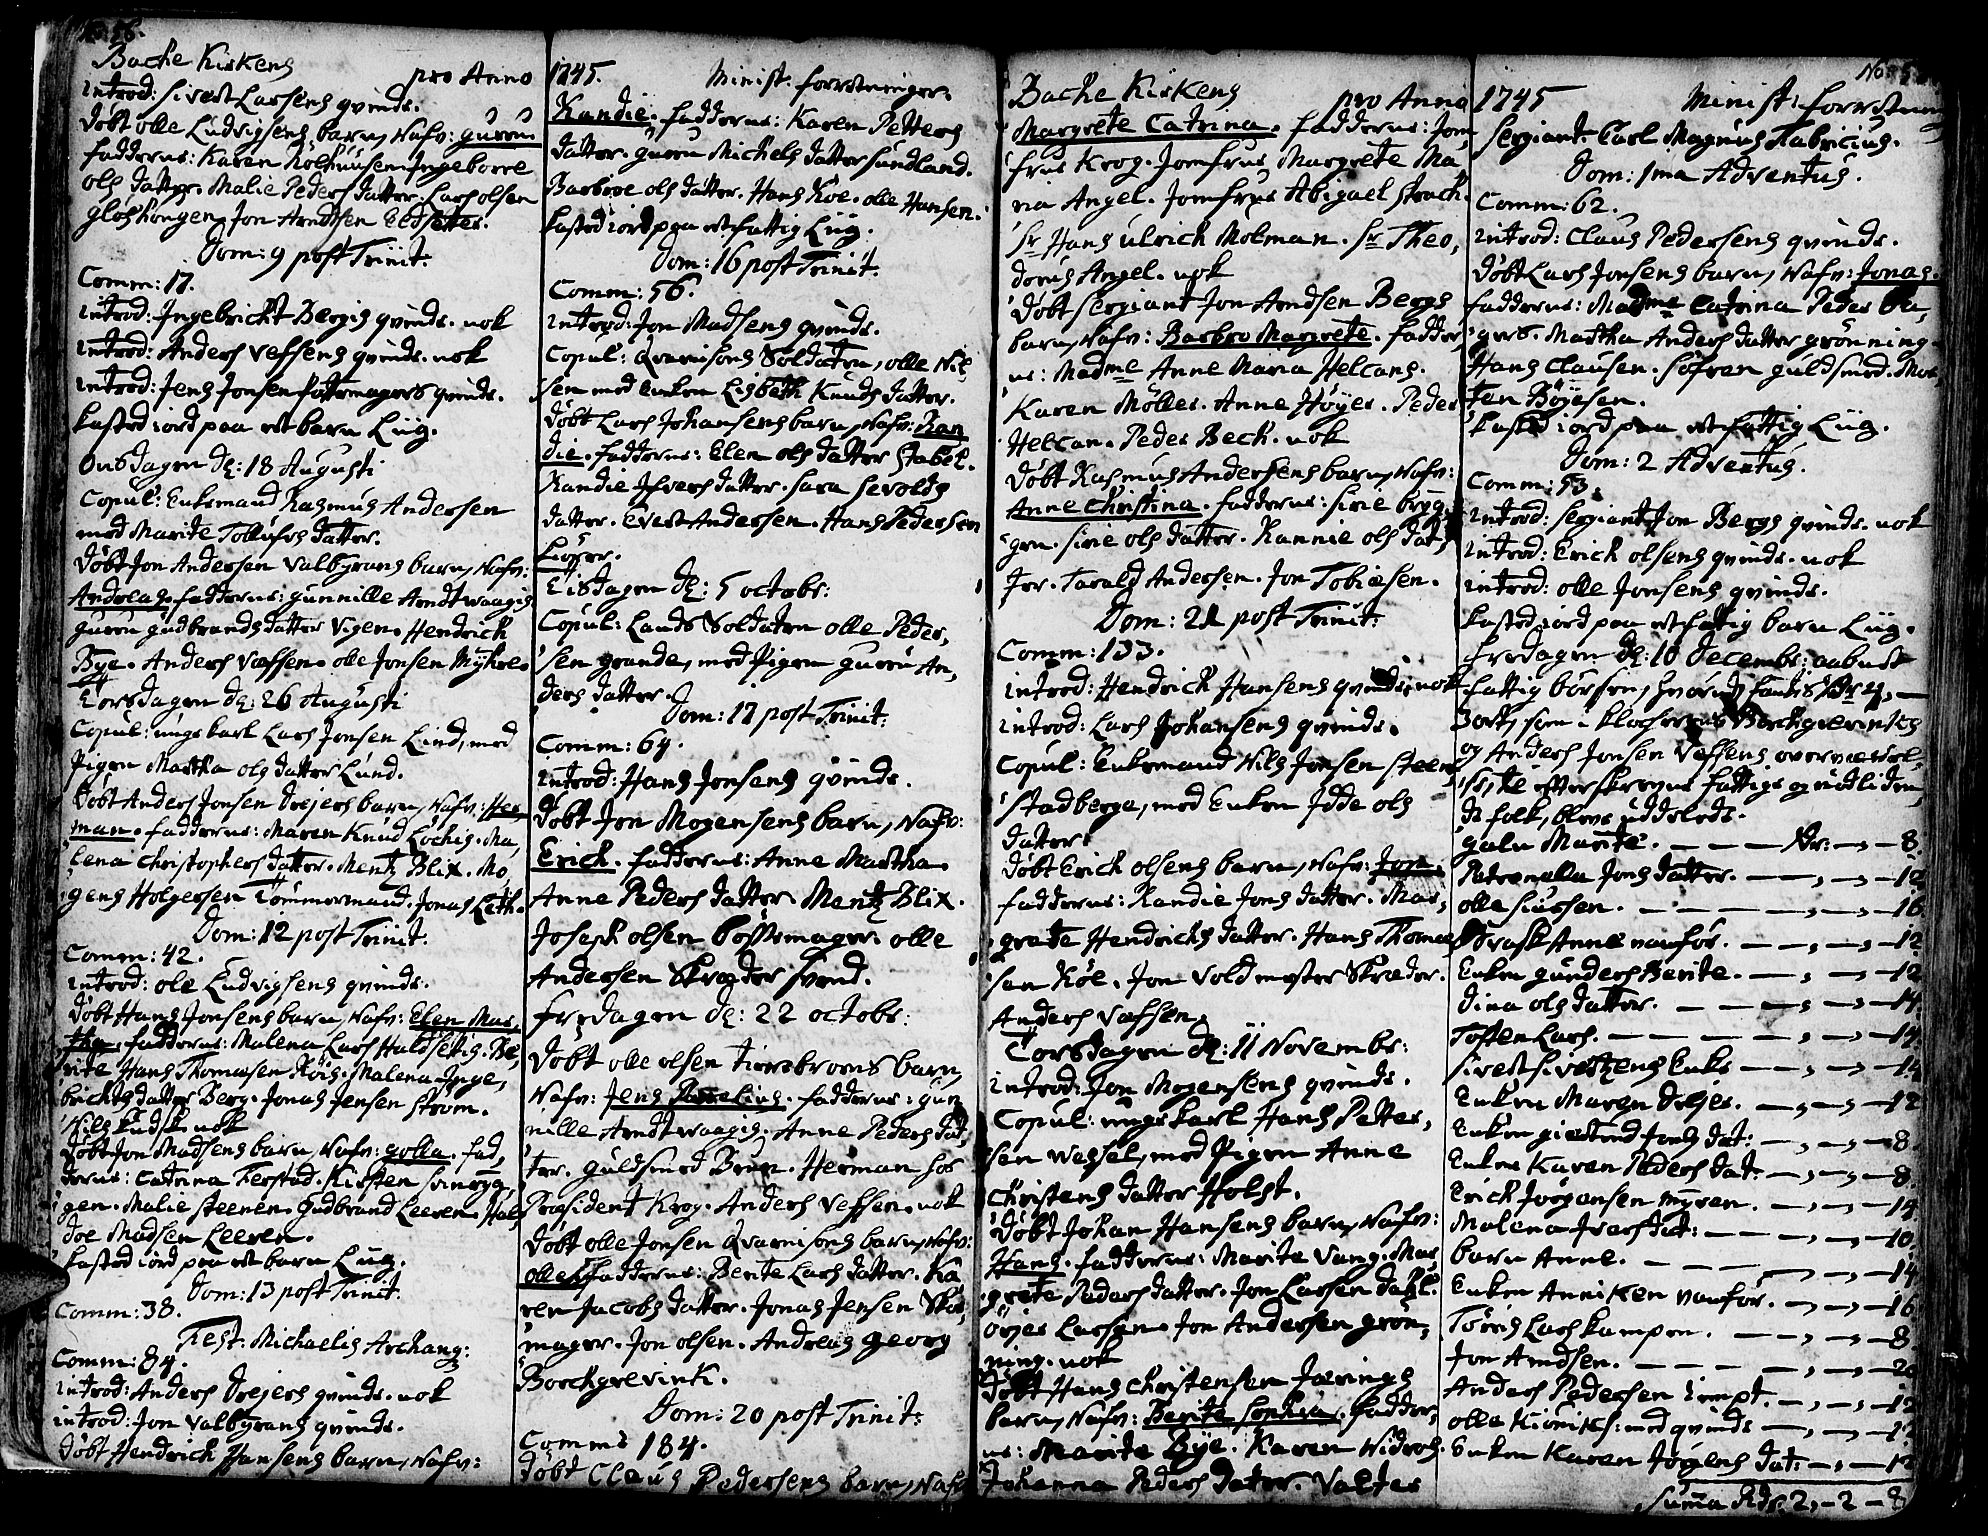 Bache Kirkens pro Anno
introd: Sivert Larsens qvinde.
døbt olle Ludvigsens barn, Nafn: guru
fadderne: Karen Ingeborre
ols datter. Malie Peders datter. Lars olsen
gloshougen. Jon Arndtsen
Dom: 9 post Trinit:
Comm: 17.
introd: Ingebricht Bergis qvinde. nok
introd: Anders Vessens qvinde. nok
introd: Jens Jonsen Pottemagers qvinde.
kasted iord paa et barn Liig.
Onsdagen d: 18 Augusti
Copul: Enkemand Rasmus Andersen
med Marite Tollufs datter.
døbt Jon Andersen Valbyrans barn, Nafn:
Andreas. fadderne: gunnille Arndt waagis
guru gudbrands datter Vigen. Hendrich
Bye. Anders Vessen. olle Jonsen Myhre.
Torsdagen d: 26 Augusti
Copul: ungekarl Lars Jonsen Lind, med
Pigen Martha ols datter Lund.
døbt Anders Jonsen drejers barn, Nafn: Her
man. fadderne: Maren Knud Lochis. Ma,
lena Christophers datter. Mentz Blix. Mo,
gens Holgersen Tømmermand. Jonas Leth.
Dom: 12 post Trinit:
Comm: 42.
introd: ole Ludvigsens qvinde.
døbt Hans Jonsens barn, Nafn: Elen Mar,
the. fadderne: Malena Lars Haldsettis. Be,
rite Hans Thomæsen Röis. Malena Inge,
brichts datter Berg. Jonas Jensen Strøm.
Nils Kudsk. nok
døbt Jon Madsens barn, Nafn: golla. fad,
derne: Catrina Ferstad. Kirsten
gen. Malie Steenen. Gudbrand Leeren. Hal,
doe Madsen Leeren.
kasted iord paa et barn Liig.
Dom: 13 post Trinit.
Comm: 38.
Fest. Michaelis Archang:
Comm: 84.
introd: Anders Drejers qvinde. nok
introd: Jon Valbyrans qvinde.
døbt Hendrich Hansens barn, Nafn:
1745. Minist. forretninger.
Randie. fadderne: Karen Petters
datter. guru Michels datter Sundland.
Barbroe ols datter. Hans Roe. olle Hansen.
kasted iord paa et fattig Liig.
Dom: 16 post Trinit:
Comm: 56.
introd: Jon Madsens qvinde.
Copul: Qvarnisons Soldaten, olle Nil,
sen med enken Lisbeth Knuds datter.
døbt Lars Johansens barn, Nafn: Ran
die. fadderne: Elen ols datter Stabel.
Randie Ifvers datter. Sara Sevolds
datter. Evert Andersen. Hans Pedersen

Tisdagen d: 5 octobr:
Copul: Lands Soldaten olle Peder,
sen grande, med Pigen guru An,
ders datter.
Dom: 17 post Trinit:
Comm: 64.
introd: Hans Jonsens qvinde.
døbt Jon Mogensens barn, Nafn:
Erich. fadderne: Anne Martha.
Anne Peders datter. Mentz Blix.
Joseph olsen Bøssemager. olle
Andersen Skræder Svend.
fredagen d: 22 octobr:
døbt olle olsen barn,
Nafn: Jens fadderne: gun
nille Arndt waagis. Anne Peders dat,
ter. guldsmed Brun. Herman hos
Præsident Krog. Anders Vessen. nok
døbt olle Jonsen Qvarnisons barn, Nafn:
olle. fadderne: Berite Lars datter. Ka,
ren Jacobs datter. Jonas Jensen Skoe,
mager. Jon olsen. Andreas georg
Borchgrevink.
Dom: 20 post Trinit:
Comm: 184.
døbt Claus Pedersens barn, Nafn
Bache Kirkens pro Anno
Margrete Catrina. fadderne: Jom,
frue Krog. Jomfrue Margrete Ma,
ria Angel. Jomfrue Abigael
Sr Hans Ulrich Molman. Sr Theo,
dorus Angel. nok
døbt Sergiant Jon Arndsen Bergs
barn, Nafn: Barbro Margrete. fadder,
ne: Madme Anne Maria Heltans.
Karen Møller. Anne Høyer. Peder
Heltan. Peder Bech. nok
døbt Rasmus Andersens barn, Nafn:
Anne Christina. fadderne: Sirie bryg,
gen. Sirie ols datter. Rannie ols dat,
ter. Tarald Andersen. Jon Tobiesen.
Dom: 21 post Trinit:
Comm: 133.
introd: Hendrich Hansens qvinde. nok
introd: Lars Johansens qvinde.
Copul: Enkemand Nils Jonsen Steen,
Stadberge, med Enken Idde ols
datter.
døbt Erich olsens barn, Nafn: Jon.
fadderne: Randie Jons datter. Mar,
grete Hendrichs datter. Hans Thomæ,
sen Röe. Jon Voldmester Skræder.
Anders Vessen.
Torsdagen d: 11 Novembr:
introd: Jon Mogensens qvinde.
Copul: ungekarl Hans Petter,
sen Wessel, med Pigen Anne
Christens datter Holst.
døbt Johan Hansens barn, Nafn:
Hans. fadderne: Marite Vang. Mar,
grete Peders datter. Jon Larsen dahl.
Ørjer Larsen. Jon Andersen grøn,
ning. nok
døbt Hans Christensen Færings
barn, Nafn: Berite Sophia. fadder,
ne: Marite Bye. Karen Widroe.
Johanna Peders dater. Valter
1745 Minist: forretning
Sergiant Carl Magnus Fabricius.
Dom: 1ma Adventus.
Comm: 62.
introd: Claus Pedersens qvinde.
døbt Lars Jonsens barn, Nafn: Jonas.
fadderne: Madme Catrina Peder
gers. Martha Anders datter grønning.
Hans Clausen. Søfren guldsmed. Mor,
ten Böyesen.
kasted iord paa et fattig Liig.
Dom: 2 Adventus.
Comm: 53.
introd: Sergiant Jon Bergs qvinde. nok
introd: Erich olsens qvinde. nok
introd: olle Jonsens qvinde.
kasted iord paa et fattig barn Liig.
fredagen d: 10 Decembr: aabnet
fattig børsen, hvorudj fantes
som i klocheren Borchgrevinks
og Anders Jonsen Vessens overværel,
se, til efterskrevne fattige og nødliden,
de folk, blev uddeelede.
galu Marite. — — — Rr: — , — 8
Petronella Jons datter. — , — , — 12
olle Siursen. — — — , — , — 16
Trask Anne vanför. — — , — , — 12
Enken gunders Berite. — , — , — 12
dina ols datter. — — — , — , — 14
Tosten Lars. — — — , — , — 14
Sivert Sivertzens Enke — , — , — 14
Enken Maren Drejer. — , — , — 12
Enken giertrud Jons dat: — , — , — 8
Enken Karen Peders dat: — , — , — 8
Erich Jörgensen Myren. — , — , — 14
Malena Ivers dat: — — , — , — 10
barn Anne. — — — , — , — 14
Enken Anniken vanför. — , — , — 16
Tøris Lars Kampen. — , — , — 8
Jon Arndsen. — — — , — , — 20
Anders Pedersen — , — , — 12
olle med qvinde — , — , — 12
Enken Karen Jörgens dat: — , — , — 12
Summa Rdr. 2, — 2 — 8